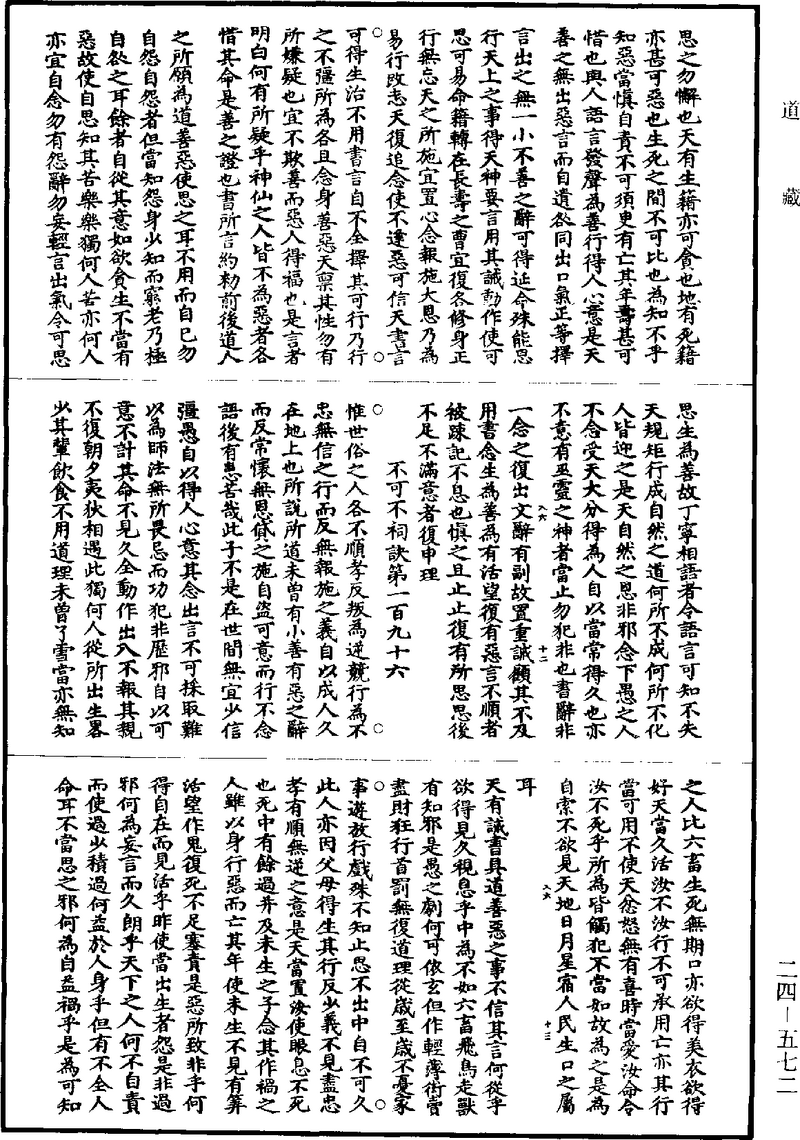 道藏
思之勿懈也天有生籍亦可貪也地有死籍
亦甚可惡也生死之間不可比也為知不乎
知惡當慎自責不可須臾有亡其年壽甚可
惜也與人語言發聲為善行得人心意是天
善之無出惡言而自遺咎同出口氣正等擇
言出之無一小不善之辭可得延命殊能思
行天上之事得天神要言用其誡動作使可
思可易命籍轉在長壽之曹宜復各修身正
行無忘天之所施宜置心念報施大恩乃為
易行改志天復追念使不逢惡可信天書言
可得生治不用書言自不全擇其可行乃行
之不彊所為各且念身善惡天稟其性勿有
所嫌疑也宜不欺善而惡人得福也是言者
明白何有所疑乎神仙之人皆不為惡者各
惜其命是善之證也書所言約勑前後道人
之所願為道善惡使思之耳不用而自已勿
自怨自怨者但當知怨身少知而窮老乃極
自欲之耳餘者自從其意如欲貪生不當有
惡故使自思知其苦樂樂獨何人苦亦何人
亦宜自念勿有怨辭勿妄輕言出氣令可思
思生為善故丁寧相語者令語言可知不失
天規矩行成自然之道何所不成何所不化
人皆迎之是天自然之恩非邪念下愚之人
不念受天大分得為人自以當常得久也亦
不意有巫靈之神者當止勿犯非也書辭非
一念之復出文辭有副故置重誡顧其不及
用書念生為善為有活望復有惡言不順者
被疎記不息也慎之且止止復有所思思後
不足不滿意者復申理
不可不祠訣第一百九十六
惟世俗之人各不順孝反叛為逆競行為不
忠無信之行而反無報施之義自以成人久
在地上也所說所道未曾有小善有惡之辭
而反常懷無恩貸之施自盜可意而行不念
語後有患苦哉此子不是在世間無宜少信
彊愚自以得人心意其念出言不可採取難
以為師法無所畏忌而功犯非歷邪自以可
意不計其命不見久全動作出入不報其親
不復朝夕夷狄相遇此獨何人從所出生畧
少其輩飲食不用道理未曾了雪當亦無知
之人比六畜生死無期口亦欲得美衣欲得
好天當久活汝不汝行不可承用亡亦其行
當可用不使天忿怒無有喜時當愛汝命令
汝不死乎所為皆觸犯不當如故為之是為
自索不欲見天地日月星宿人民生口之屬
耳
天有誡書具道善惡之事不信其言何從乎
欲得見久視息乎中為不如六畜飛鳥走獸
有知邪是愚之劇何可依玄但作輕薄衒賣
盡財狂行首罰無復道理從歲至歲不憂家
事遊放行戲殊不知止思不出中自不可久
此人亦因父母得生其行反少義不見盡忠
孝有順無逆之意是天當置汝使眼息不死
也死中有餘過并及未生之子念其作禍之
人雖以身行惡而亡其年使未生不見有筭
活望作鬼復死不足塞責是惡所致非乎何
得自在而見活乎昨使當出生者怨是非過
邪何為妄言而久朗乎天下之人何不自責
而使過少積過何益於人身乎但有不全人
命耳不當思之邪何為自益禍乎是為可知
二四－五七二